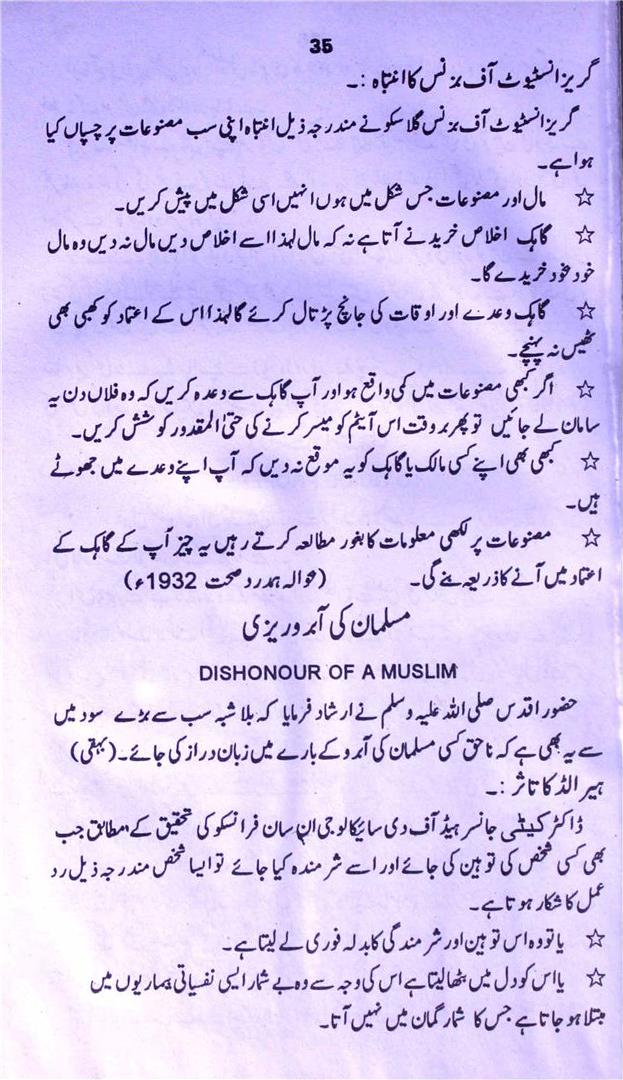 35
گریز انسٹیوٹ آف بزنس کا انتباہ :۔
گریز انسٹیوٹ آف بزنس گلاسکو نے مندرجہ ذیل انتباہ اپنی سب مصنوعات پر چسپاں کیا
ہوا ہے۔
☆ مال اور مصنوعات جس شکل میں ہوں انہیں اسی شکل میں پیش کریں۔
☆ گاہک اخلاص خریدنے آتا ہے نہ کہ مال لہذا اسے اخلاص دیں مال نہ دیں وہ مال
خود بخود خریدے گا۔
☆ گاہک وعدے اور اوقات کی جانچ پڑتال کرئے گا لہذا اس کے اعتماد کو کبھی بھی
ٹھیس نہ پہنچے۔
☆ اگر کبھی مصنوعات میں کمی واقع ہو اور آپ گاہک سے وعدہ کریں کہ وہ فلاں دن یہ
سامان لے جائیں تو پھر بروقت اس آیٹم کو میسر کرنے کی حتیٰ المقدور کوشش کریں۔
☆ کبھی بھی اپنے کسی مالک یا گاہک کو یہ موقع نہ دیں کہ آپ اپنے وعدے میں جھوٹے
ہیں۔
☆ مصنوعات پر لکھی معلومات کا بغور مطالعہ کرتے رہیں یہ چیز آپ کے گاہک کے
اعتماد میں آنے کا ذریعہ بنے گی۔ (حوالہ ہمدرد صحت 1932ء)
مسلمان کی آبروریزی
DISHONOUR OF A MUSLIM
حضور اقدس صلی اللہ علیہ وسلم نے ارشاد فرمایا کہ بلا شبہ سب سے بڑے سود میں
سے یہ بھی ہے کہ ناحق کسی مسلمان کی آبرو کے بارے میں زبان دراز کی جائے۔ (بیہقی)
ہیرالڈ کا تاثر :۔
ڈاکٹر کیٹی جانسر ہیڈ آف دی سائیکالوجی ان سان فرانسکو کی تحقیق کے مطابق جب
بھی کسی شخص کی توہین کی جائے اور اسے شرمندہ کیا جائے تو ایسا شخص مندرجہ ذیل رد
عمل کا شکار ہوتا ہے۔
☆ یا تو وہ اس توہین اور شرمندگی کا بدلہ فوری لے لیتا ہے۔
☆ یا اس کو دل میں بٹھا لیتا ہے اس کی وجہ سے وہ بے شمار ایسی نفسیاتی بیماریوں میں
مبتلا ہو جاتا ہے جس کا شمار گمان میں نہیں آتا۔